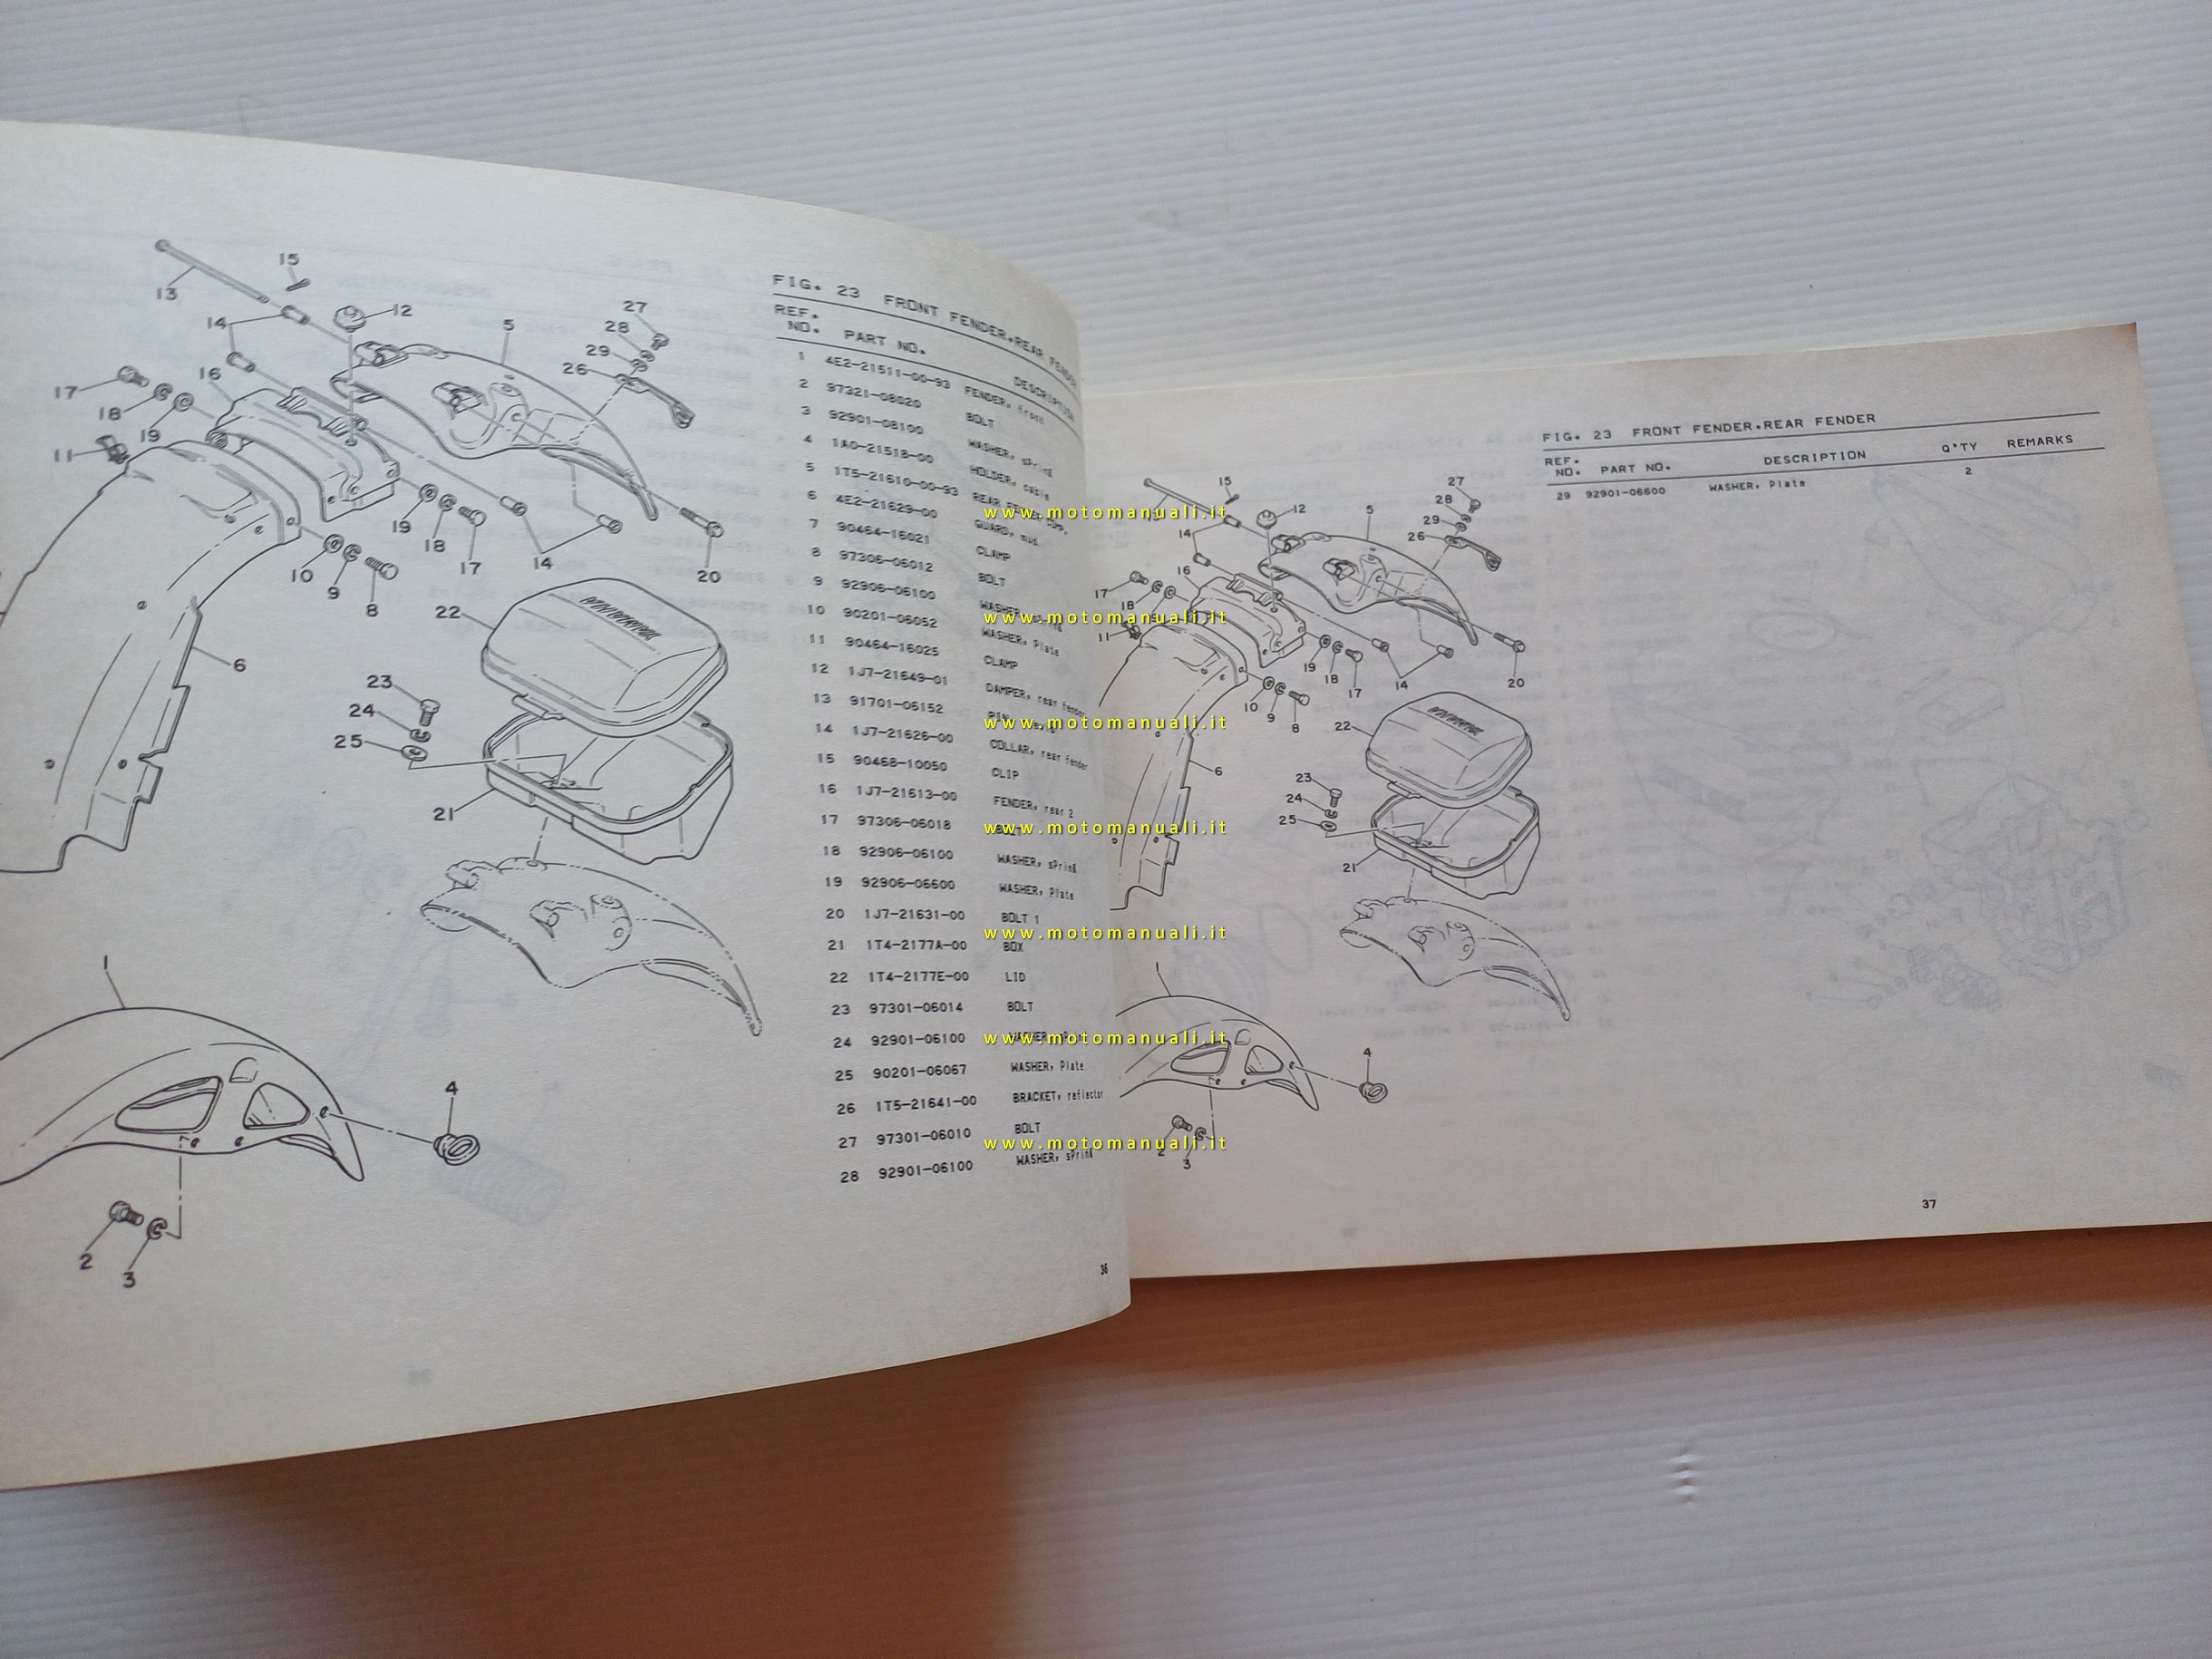 FIG. 23 FRONT FENDER.REAR FENDER
REF. NO. PART NO. DESCRIPTION
1 4E2-21511-00-93 FENDER, front
2 97321-08020 BOLT
3 92901-08100 WASHER, spring
4 1A0-21518-00 HOLDER, cable
5 1T5-21610-00-93 REAR FENDER COMP.
6 4E2-21629-00 GUARD, mud
7 90464-16021 CLAMP
8 97306-06012 BOLT
9 92906-06100 WASHER,
10 90201-06052 WASHER, Plate
11 90464-16025 CLAMP
12 1J7-21649-01 DAMPER, rear fender
13 91701-06152 PIN,
14 1J7-21626-00 COLLAR, rear fender
15 90468-10050 CLIP
16 1J7-21613-00 FENDER, rear 2
17 97306-06018 BOLT
18 92906-06100 WASHER, spring
19 92906-06600 WASHER, Plate
20 1J7-21631-00 BOLT 1
21 1T4-2177A-00 BOX
22 1T4-2177E-00 LID
23 97301-06014 BOLT
24 92901-06100 WASHER,
25 90201-06067 WASHER, Plate
26 1T5-21641-00 BRACKET, reflector
27 97301-06010 BOLT
28 92901-06100 WASHER, spring
36
13
15
14
12
5
27
28
29
26
17
18
19
16
11
19
18
17
14
20
10
9
8
22
6
23
24
25
21
1
4
2
3
FIG. 23 FRONT FENDER.REAR FENDER
REF. NO. PART NO. DESCRIPTION Q'TY REMARKS
29 92901-06600 WASHER, Plate 2
15
14
12
5
27
28
29
26
17
18
16
11
19
18
17
14
20
10
9
8
22
6
23
24
25
21
1
4
2
3
37
www.motomanuali.it
www.motomanuali.it
www.motomanuali.it
www.motomanuali.it
www.motomanuali.it
www.motomanuali.it
www.motomanuali.it